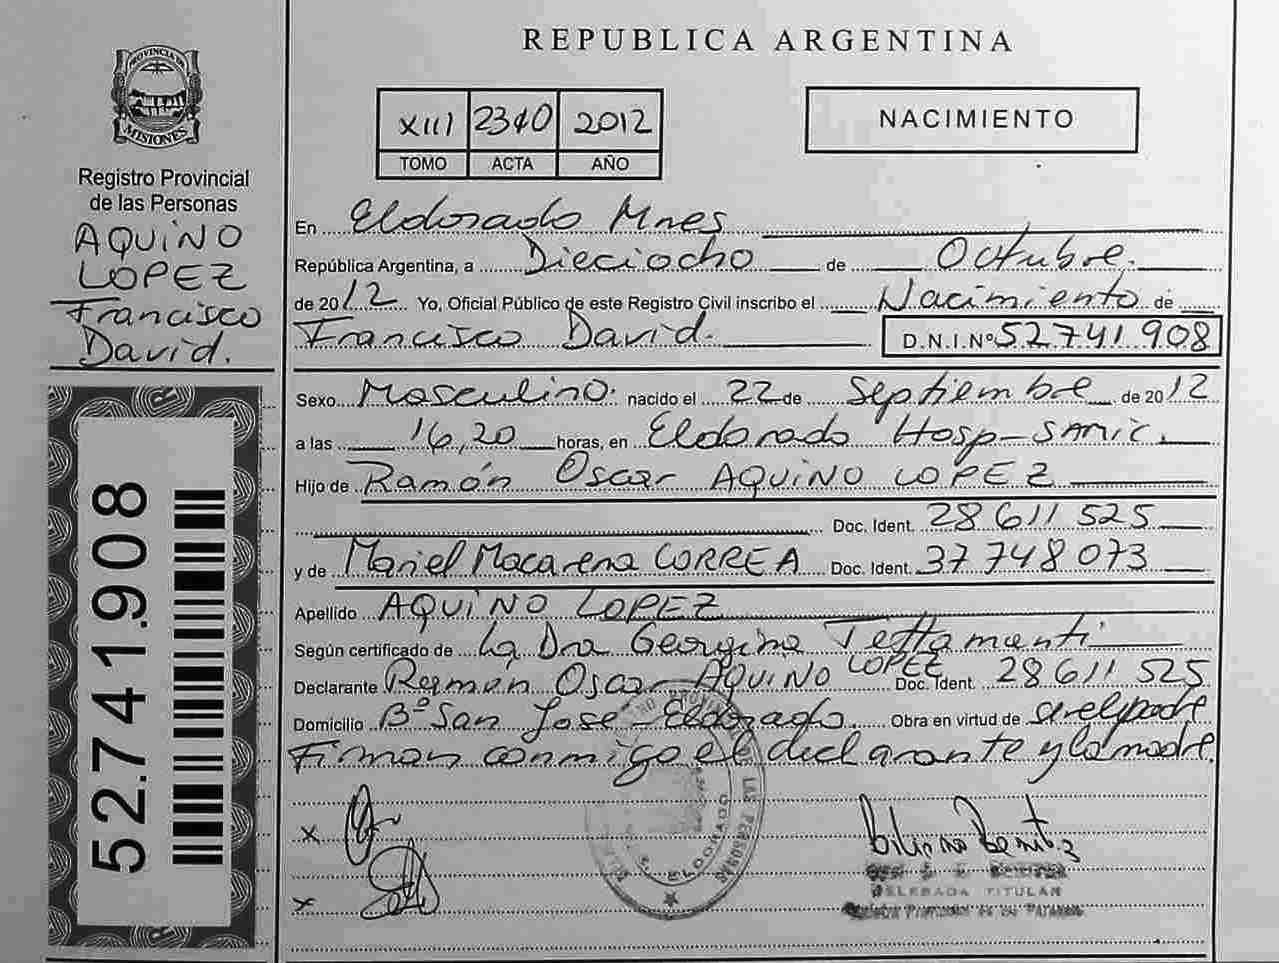 REPUBLICA ARGENTINA
PROVINCIA DE
MISIONES
Registro Provincial
de las Personas
AQUINO
LOPEZ
Francisco
David.
52.741.908
XIII 2340 2012
TOMO ACTA AÑO
NACIMIENTO
En Eldorado Mnes
República Argentina, a Dieciocho de Octubre.
de 2012 Yo, Oficial Público de este Registro Civil inscribo el Nacimiento de
Francisco David. D.N.I.Nº 52.741.908
Sexo Masculino. nacido el 22 de Septiembre de 2012
a las 16,20 horas, en Eldorado Hosp-SAMIC.
Hijo de Ramón Oscar AQUINO LOPEZ
Doc. Ident. 28 611 525
y de Mariel Macarena CORREA Doc. Ident. 37 748 073
Apellido AQUINO LOPEZ
Según certificado de La Dra Georgina Tettamanti
Declarante Ramón Oscar AQUINO LOPEZ Doc. Ident. 28 611 525
Domicilio Bº San Jose - Eldorado Obra en virtud de ser el padre
Firman conmigo el declarante y la madre.
x
x
LAS PERSONAS
ELDORADO
Benitez
DELEGADA TITULAR
Registro Provincial de las Personas